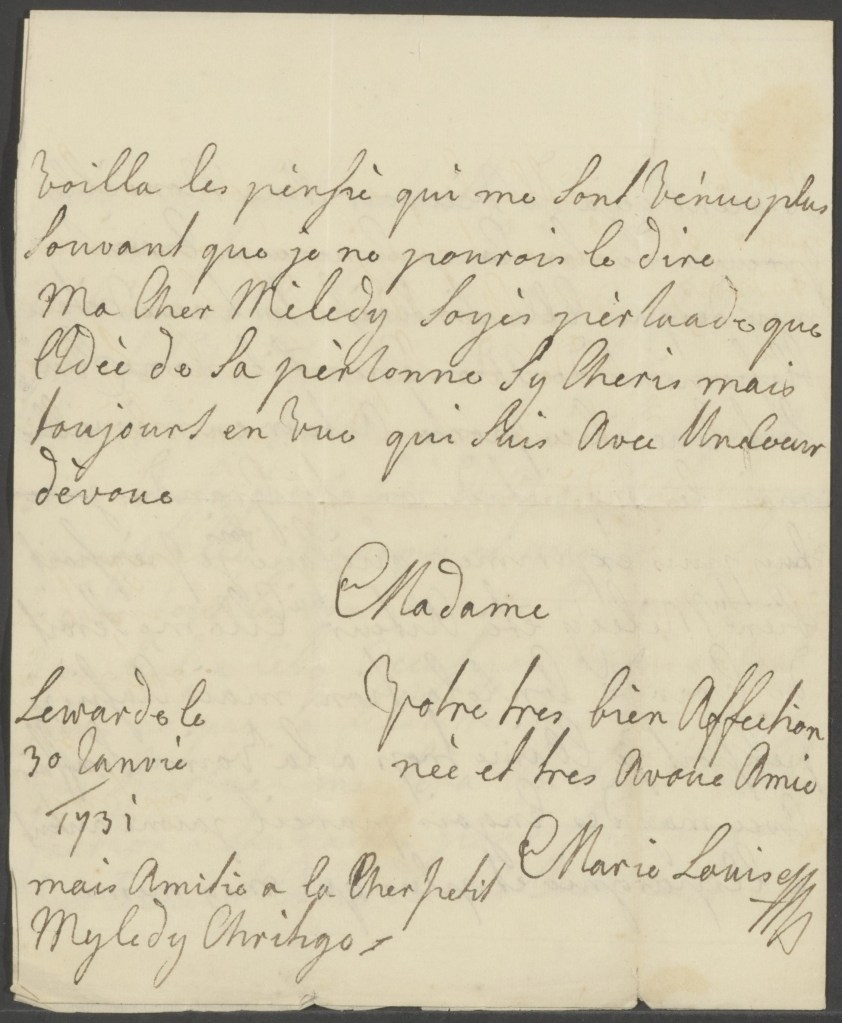 Voilla les pènssè qui me sont vénue plus
souvant que je ne pourois le dire
Ma Cher Mèledy soyès pèrsuade que
l'Idèè de sa pèrsonne sy Cheris mais
toujours en vue qui suis Avec Une Coeur
dèvoue
Madame
Lewarde le
30 Janvie
1731
Votre tres bièn Affection
nèè et tres Avoue Amie
Marie Louise
mais Amitie a la Cher petit
Myledy